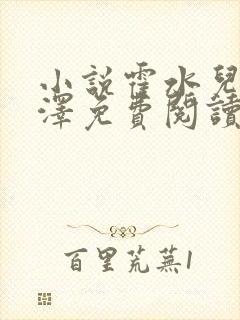 小說霍水兒
澤免費閱讀
百里荒蕪1